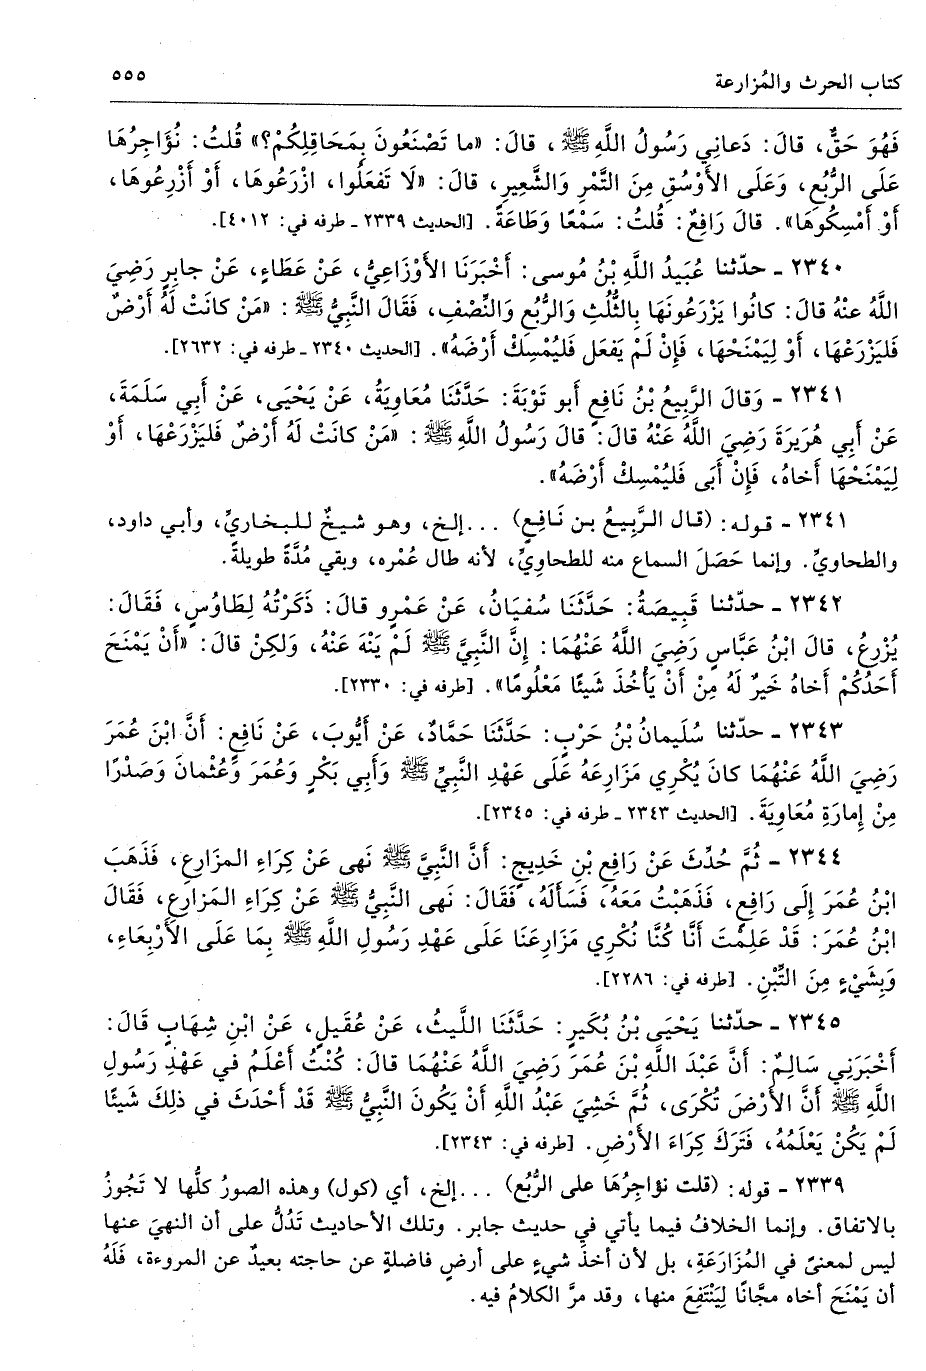 كتاب الحرث والمُزارعة
٥٥٥
فَهُوَ حَقٌّ، قالَ: دَعانِي رَسُولُ اللَّهِ ﷺ، قالَ: «ما تَصْنَعُونَ بِمَحَاقِلِكُمْ؟» قُلتُ: نُؤَاجِرُهَا
عَلَى الرُّبُعِ، وَعَلَى الأَوْسُقِ مِنَ التَّمْرِ وَالشَّعِيرِ، قالَ: «لَا تَفعَلُوا، ازْرَعُوهَا، أَوْ أَزْرِعُوهَا،
أَوْ أَمْسِكُوهَا». قالَ رَافِعٌ: قُلتُ: سَمْعًا وَطَاعَةً. [الحديث ٢٣٣٩ ـ طرفه في: ٤٠١٢].
٢٣٤٠ ـ حدّثنا عُبَيدُ اللَّهِ بْنُ مُوسى: أَخْبَرَنَا الأَوْزَاعِيُّ، عَنْ عَطَاءٍ، عَنْ جابِرٍ رَضِيَ
اللَّهُ عنْهُ قالَ: كانُوا يَزْرَعُونَهَا بِالثُّلُثِ وَالرُّبُعِ وَالنِّصْفِ، فَقَالَ النَّبِيُّ ﷺ: «مَنْ كانَتْ لَهُ أَرْضٌ
فَليَزْرَعْهَا، أَوْ لِيَمْنَحْهَا، فَإِنْ لَمْ يَفعَل فَليُمْسِكْ أَرْضَهُ». [الحديث ٢٣٤٠ ـ طرفه في: ٢٦٣٢].
٢٣٤١ ـ وَقالَ الرَّبِيعُ بْنُ نَافِعٍ أَبو تَوْبَةَ: حَدَّثَنَا مُعَاوِيَةُ، عَنْ يَحْيَى، عَنْ أَبِي سَلَمَةَ،
عَنْ أَبِي هُرَيرَةَ رَضِيَ اللَّهُ عَنْهُ قالَ: قالَ رَسُولُ اللَّهِ ﷺ: «مَنْ كانَتْ لَهُ أَرْضٌ فَليَزْرَعْهَا، أَوْ
لِيَمْنَحْهَا أَخاهُ، فَإِنْ أَبَى فَليُمْسِكْ أَرْضَهُ».
٢٣٤١ ـ قوله: (قال الرَّبِيعُ بن نَافِعٍ) ... إلخ، وهو شيخٌ للبخاريِّ، وأبي داود،
والطحاويِّ. وإنما حَصَلَ السماع منه للطحاوِيِّ، لأنه طال عُمْره، وبقي مُدَّةً طويلةً.
٢٣٤٢ ـ حدّثنا قَبِيصَةُ: حَدَّثَنَا سُفيَانُ، عَنْ عَمْرٍو قالَ: ذَكَرْتُهُ لِطَاوُسٍ، فَقَالَ:
يُزْرِعُ، قالَ ابْنُ عَبَّاسٍ رَضِيَ اللَّهُ عَنْهُمَا: إِنَّ النَّبِيَّ ﷺ لَمْ يَنْهَ عَنْهُ، وَلكِنْ قالَ: «أَنْ يَمْنَحَ
أَحَدُكُمْ أَخاهُ خَيرٌ لَهُ مِنْ أَنْ يَأْخُذَ شَيئًا مَعْلُومًا». [طرفه في: ٢٣٣٠].
٢٣٤٣ ـ حدّثنا سُلَيمانُ بْنُ حَرْبٍ: حَدَّثَنَا حَمَّادٌ، عَنْ أَيُّوبَ، عَنْ نَافِعٍ: أَنَّ ابْنَ عُمَرَ
رَضِيَ اللَّهُ عَنْهُمَا كانَ يُكْرِي مَزَارِعَهُ عَلَى عَهْدِ النَّبِيِّ ﷺ وَأَبِي بَكْرٍ وَعُمَرَ وَعُثْمانَ وَصَدْرًا
مِنْ إِمارَةِ مُعَاوِيَةَ. [الحديث ٢٣٤٣ ـ طرفه في: ٢٣٤٥].
٢٣٤٤ ـ ثُمَّ حُدِّثَ عَنْ رَافِعِ بْنِ خَدِيجٍ: أَنَّ النَّبِيَّ ﷺ نَهى عَنْ كِرَاءِ المَزَارِعِ، فَذَهَبَ
ابْنُ عُمَرَ إِلَى رَافِعٍ، فَذَهَبْتُ مَعَهُ، فَسَأَلَهُ، فَقَالَ: نَهى النَّبِيُّ ﷺ عَنْ كِرَاءِ المَزَارِعِ، فَقَالَ
ابْنُ عُمَرَ: قَدْ عَلِمْتَ أَنَّا كُنَّا نُكْرِي مَزَارِعَنَا عَلَى عَهْدِ رَسُولِ اللَّهِ ﷺ بِمَا عَلَى الأَرْبِعَاءِ،
وَبِشَيْءٍ مِنَ التِّبْنِ. [طرفه في: ٢٢٨٦].
٢٣٤٥ ـ حدّثنا يَحْيَى بْنُ بُكَيرٍ: حَدَّثَنَا اللَّيثُ، عَنْ عُقَيلٍ، عَنِ ابْنِ شِهَابٍ قَالَ:
أَخْبَرَنِي سَالِمٌ: أَنَّ عَبْدَ اللَّهِ بْنَ عُمَرَ رَضِيَ اللَّهُ عَنْهُمَا قالَ: كُنْتُ أَعْلَمُ في عَهْدِ رَسُولِ
اللَّهِ ﷺ أَنَّ الأَرْضَ تُكْرَى، ثُمَّ خَشِيَ عَبْدُ اللَّهِ أَنْ يَكُونَ النَّبِيُّ ﷺ قَدْ أَحْدَثَ في ذلِكَ شَيئًا
لَمْ يَكُنْ يَعْلَمُهُ، فَتَرَكَ كِرَاءَ الأَرْضِ. [طرفه في: ٢٣٤٣].
٢٣٣٩ ـ قوله: (قلت نؤاجِرُهَا على الرُّبُع) ... إلخ، أي (كول) وهذه الصورُ كلُّها لا تَجُوزُ
بالاتفاق. وإنما الخلافُ فيما يأتي في حديث جابر. وتلك الأحاديث تَدُلُّ على أن النهيَ عنها
ليس لمعنىً في المُزَارَعَةِ، بل لأن أخذَ شيءٍ على أرضٍ فاضلةٍ عن حاجته بعيدٌ عن المروءة، فَلَهُ
أن يَمْنَحَ أخاه مجَّانًا لِيَنْتَفِعَ منها، وقد مرَّ الكلامُ فيه.